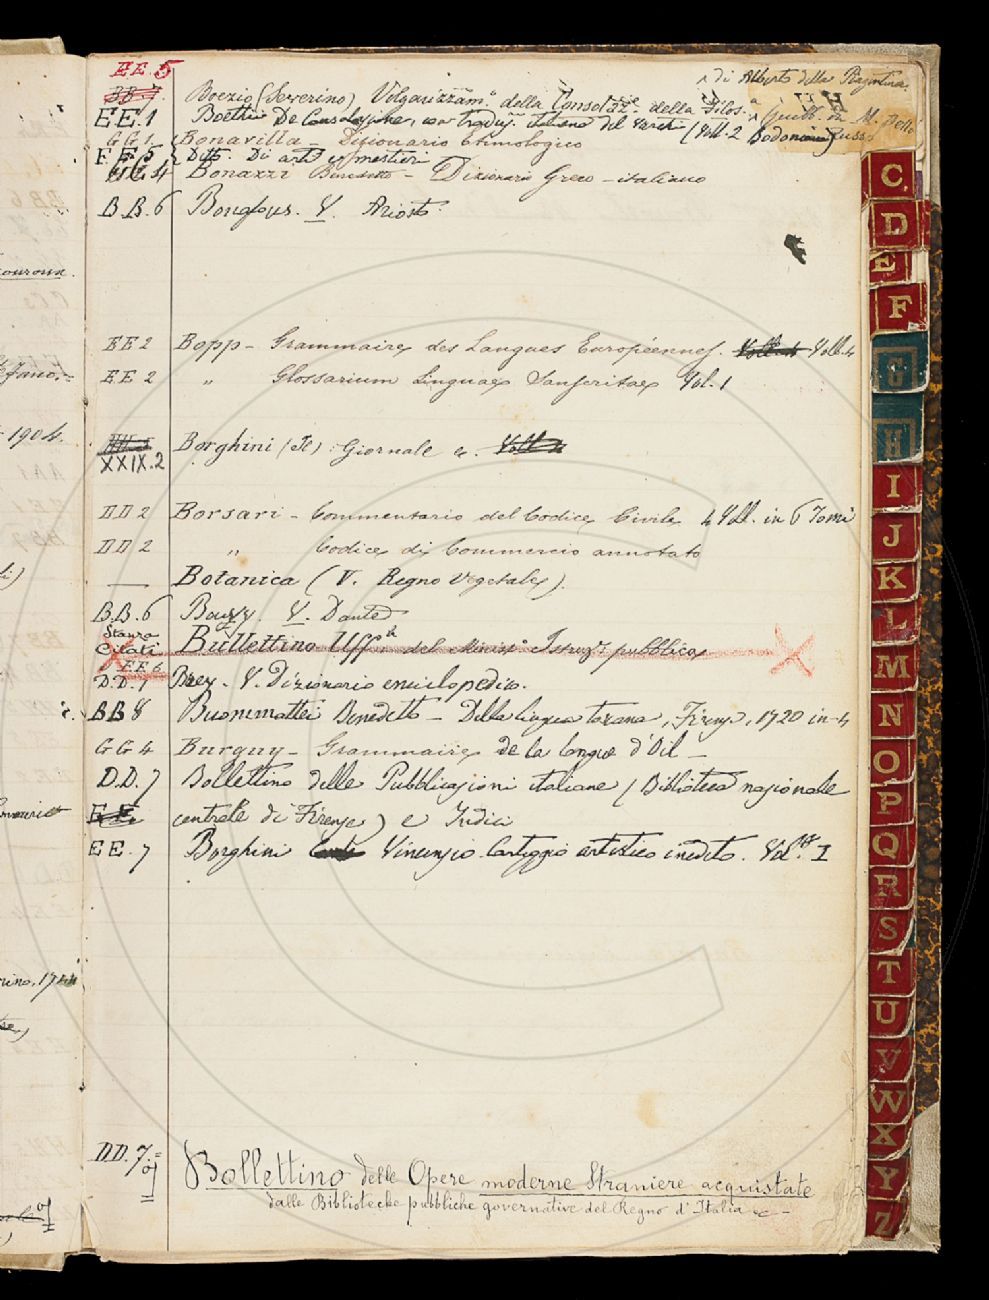 EE.5
^ di Alberto della Piagentina.
BB.7. Boezio (Severino) Volgarizzam.o della Consolaz.e della Filos.a
EE.1 Boethii De Consolatione, con traduz. italiana del Varchi (Voll. 2 Bodoniani)
GG1. Bonavilla – Dizionario Etimologico
EE5 " Detto. Di arti e mestieri
GG4 Bonazzi Benedetto – Dizionario Greco – italiano
B.B.6 Bonafous. V. Ariosto.
EE2 Bopp – Grammaire des Langues Européennes. Voll. 4 Voll. 4
EE2 " Glossarium Linguae Sanscritae Vol. 1
XXIX.2 Borghini (Il) : Giornale &. Voll
DD2 Borsari – Commentario del Codice Civile 4 Voll. in 6 Tomi
DD2 " Codice di Commercio annotato
— Botanica (V. Regno Vegetale).
B.B.6 Bozzy. V. Dante
Stanza
Citati Bullettino Uff. del Minis.o Istruz. pubblica
EE6
D.D.1 Brex. V. Dizionario enciclopedico.
BB8 Buommattei Benedetto – Della lingua toscana, Firenze, 1720 in-4
GG4 Burguy – Grammaire de la langue d'Oil –
D.D.7 Bollettino delle Pubblicazioni italiane (Biblioteca nazionale
EE. centrale di Firenze) e Indici
EE.7 Borghini Vincenzio Carteggio artistico inedito. Vol. I
DD.7.= Bollettino delle Opere moderne Straniere acquistate
dalle Biblioteche pubbliche governative del Regno d'Italia &c –
ouroux.
1904.
rino, 1744
C
D
E
F
G
H
I
J
K
L
M
N
O
P
Q
R
S
T
U
V
W
X
Y
Z